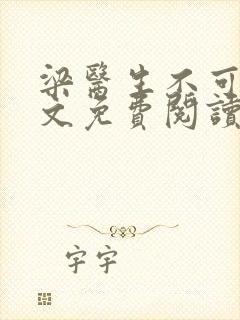 梁醫生不可
文免費閱讀
字字